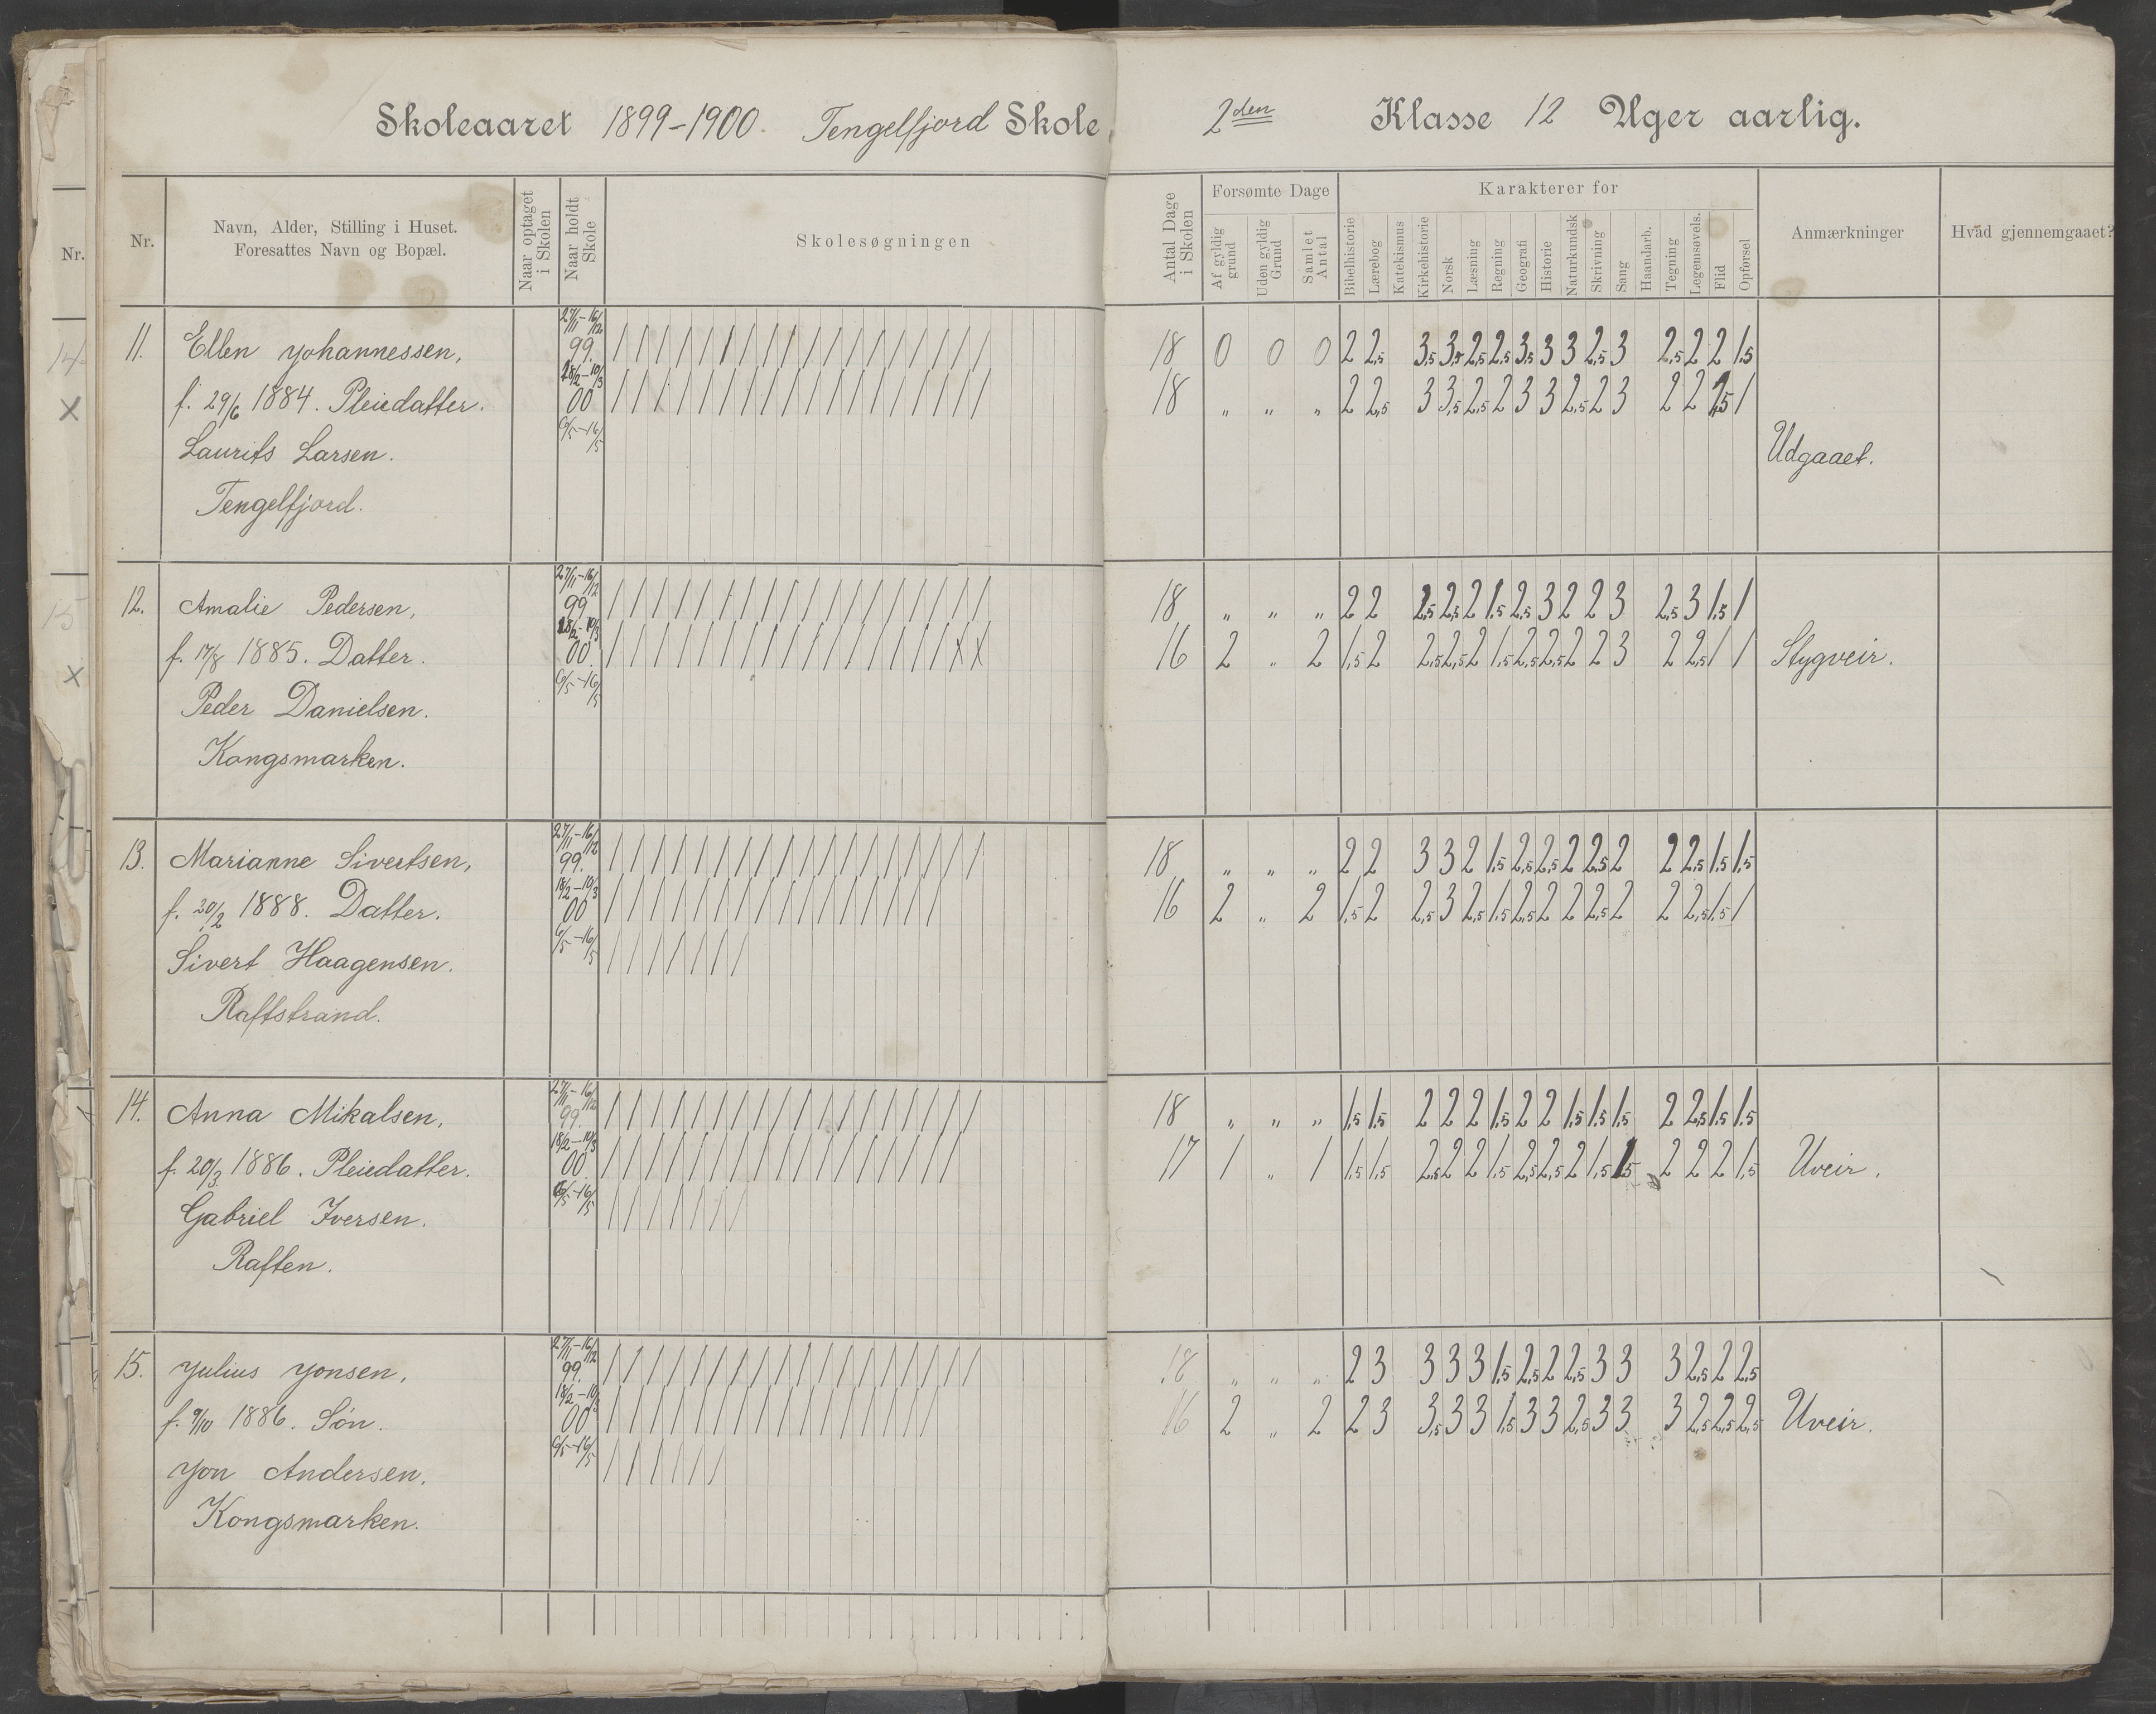 Skoleaaret 1899-1900. Tengelfjord Skole, 2den Klasse 12 Uger aarlig.
Nr.
Nr. Navn, Alder, Stilling i Huset. Foresattes Navn og Bopæl. Naar optaget i Skolen Naar holdt Skole Skolesøgningen Antal Dage i Skolen Forsømte Dage Karakterer for Anmærkninger Hvad gjennemgaaet?
Af gyldig grund Uden gyldig Grund Samlet Antal Bibelhistorie Lærebog Katekismus Kirkehistorie Norsk Læsning Regning Geografi Historie Naturkundsk Skrivning Sang Haandarb. Tegning Legemsøvels. Flid Opførsel
14
x
15
x
11. Ellen Johannessen, 27/11-16/12 99. 18 0 0 0 2 2,5 3,5 3,5 2,5 2,5 3,5 3 3 2,5 3 2,5 2 2 1,5
f. 29/6 1884. Pleiedatter. 18/2-10/3 00 18 " " " 2 2,5 3 3,5 2,5 2 3 3 2,5 2 3 2 2 1,5 1
Laurits Larsen. 6/5-16/5 Udgaaet.
Tengelfjord.
12. Amalie Pedersen, 27/11-16/12 99 18 " " " 2 2 2,5 2,5 2 1,5 2,5 3 2 2 3 2,5 3 1,5 1
f. 17/8 1885. Datter. 18/2-10/3 00. x x 16 2 " 2 1,5 2 2,5 2,5 2 1,5 2,5 2,5 2 2 3 2 2,5 1 1 Stygveir.
Peder Danielsen. 6/5-16/5
Kongsmarken.
13. Marianne Sivertsen, 27/11-16/12 99. 18 " " " 2 2 3 3 2 1,5 2,5 2,5 2 2,5 2 2 2,5 1,5 1,5
f. 20/2 1888. Datter. 18/2-10/3 00 16 2 " 2 1,5 2 2,5 3 2,5 1,5 2,5 2 2 2,5 2 2 2,5 1,5 1
Sivert Haagensen. 6/5-16/5
Raftstrand.
14. Anna Mikalsen, 27/11-16/12 99. 18 " " " 1,5 1,5 2 2 2 1,5 2 2 1,5 1,5 1,5 2 2,5 1,5 1,5
f. 20/3 1886. Pleiedatter. 18/2-10/3 00. 17 1 " 1 1,5 1,5 2,5 2 2 1,5 2,5 2,5 2 1,5 1,5 2 2 2 1,5 Uveir.
Gabriel Iversen. 6/5-16/5
Raften.
15. Julius Jonsen, 27/11-16/12 99. 18 " " " 2 3 3 3 3 1,5 2,5 2 2,5 3 3 3 2,5 2 2,5
f. 9/10 1886. Søn. 18/2-10/3 00 16 2 " 2 2 3 3,5 3 3 1,5 3 3 2,5 3 3 3 2,5 2,5 2,5 Uveir.
Jon Andersen. 6/5-16/5
Kongsmarken.